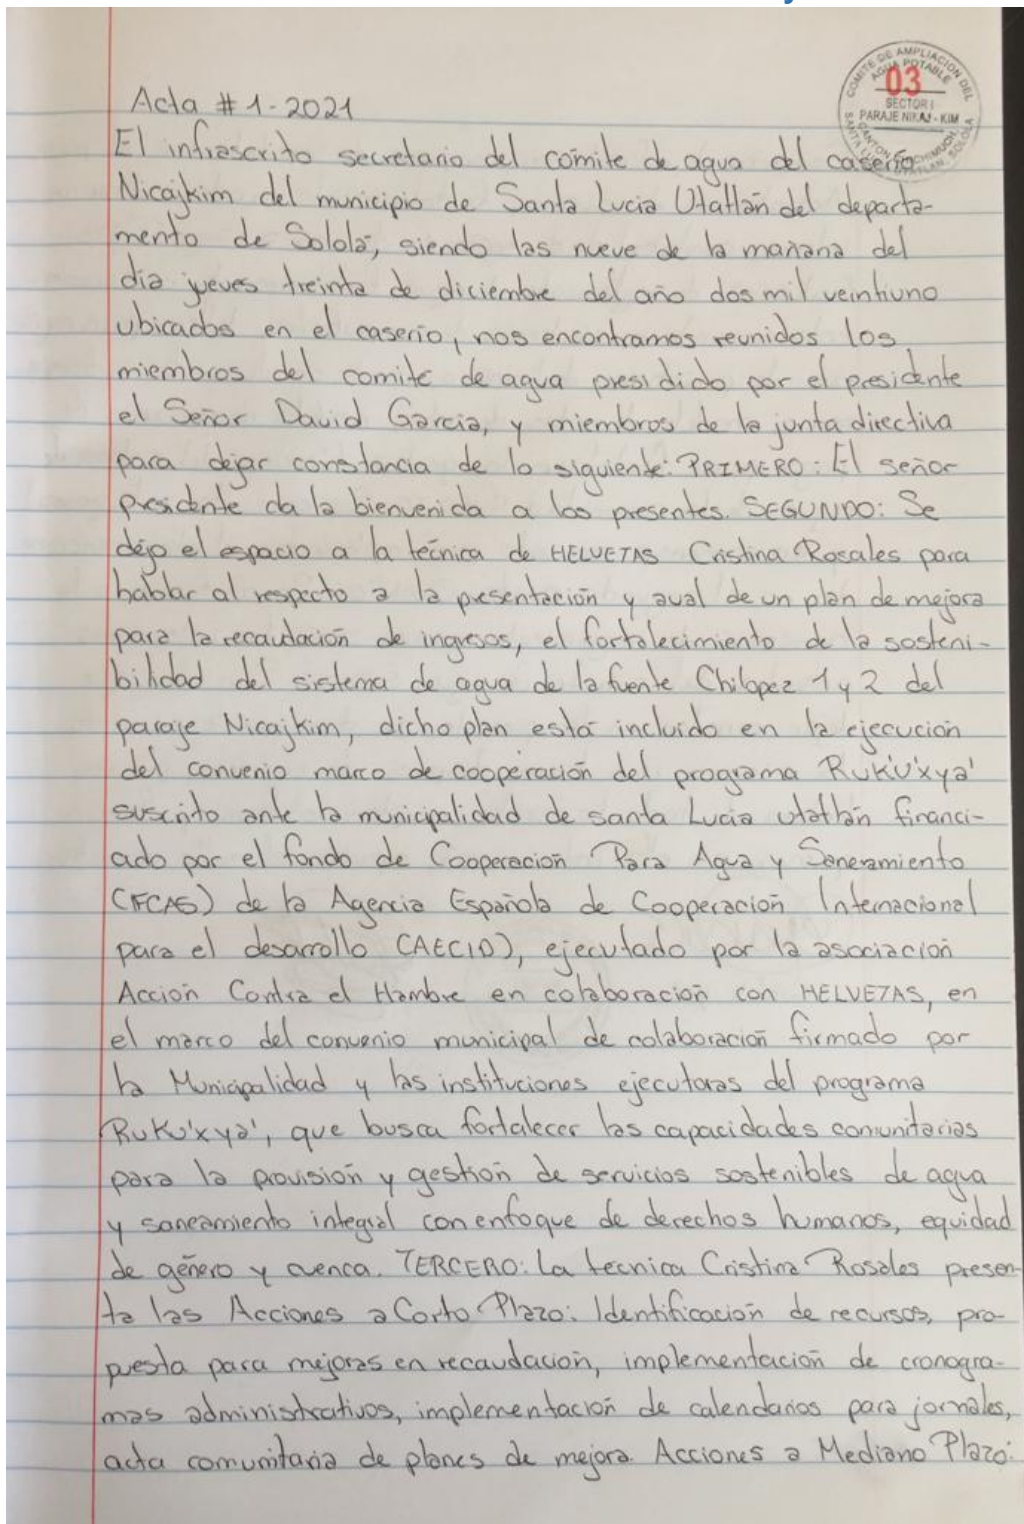 COMITE DE AMPLIACION DEL
AGUA POTABLE
03
SECTOR I
PARAJE NIKAJ - KIM
Acta # 1-2021
El infrascrito secretario del cómite de agua del caserio
Nicajkim del municipio de Santa Lucia Utatlán del departa-
mento de Sololá, siendo las nueve de la mañana del
dia jueves treinta de diciembre del año dos mil veintiuno
ubicados en el caserio, nos encontramos reunidos los
miembros del comite de agua presidido por el presidente
el Señor David Garcia, y miembros de la junta directiva
para dejar constancia de lo siguiente: PRIMERO: El señor
presidente da la bienvenida a los presentes. SEGUNDO: Se
dejo el espacio a la técnica de HELVETAS Cristina Rosales para
hablar al respecto a la presentación y aval de un plan de mejora
para la recaudación de ingresos, el fortalecimiento de la sosteni-
bilidad del sistema de agua de la fuente Chilopez 1 y 2 del
paraje Nicajkim, dicho plan está incluido en la ejecución
del convenio marco de cooperación del programa RuKu'xya'
suscrito ante la municipalidad de santa Lucia utatlán financi-
ado por el fondo de Cooperación Para Agua y Saneamiento
(FCAS) de la Agencia Española de Cooperación Internacional
para el desarrollo (AECID), ejecutado por la asociación
Acción Contra el Hambre en colaboración con HELVETAS, en
el marco del convenio municipal de colaboración firmado por
la Municipalidad y las instituciones ejecutoras del programa
RuKu'xya', que busca fortalecer las capacidades comunitarias
para la provisión y gestión de servicios sostenibles de agua
y saneamiento integral con enfoque de derechos humanos, equidad
de género y cuenca. TERCERO: La tecnica Cristina Rosales presen-
ta las Acciones a Corto Plazo: Identificación de recursos, pro-
puesta para mejoras en recaudación, implementación de cronogra-
mas administrativos, implementación de calendarios para jornales,
acta comunitaria de planes de mejora. Acciones a Mediano Plazo: